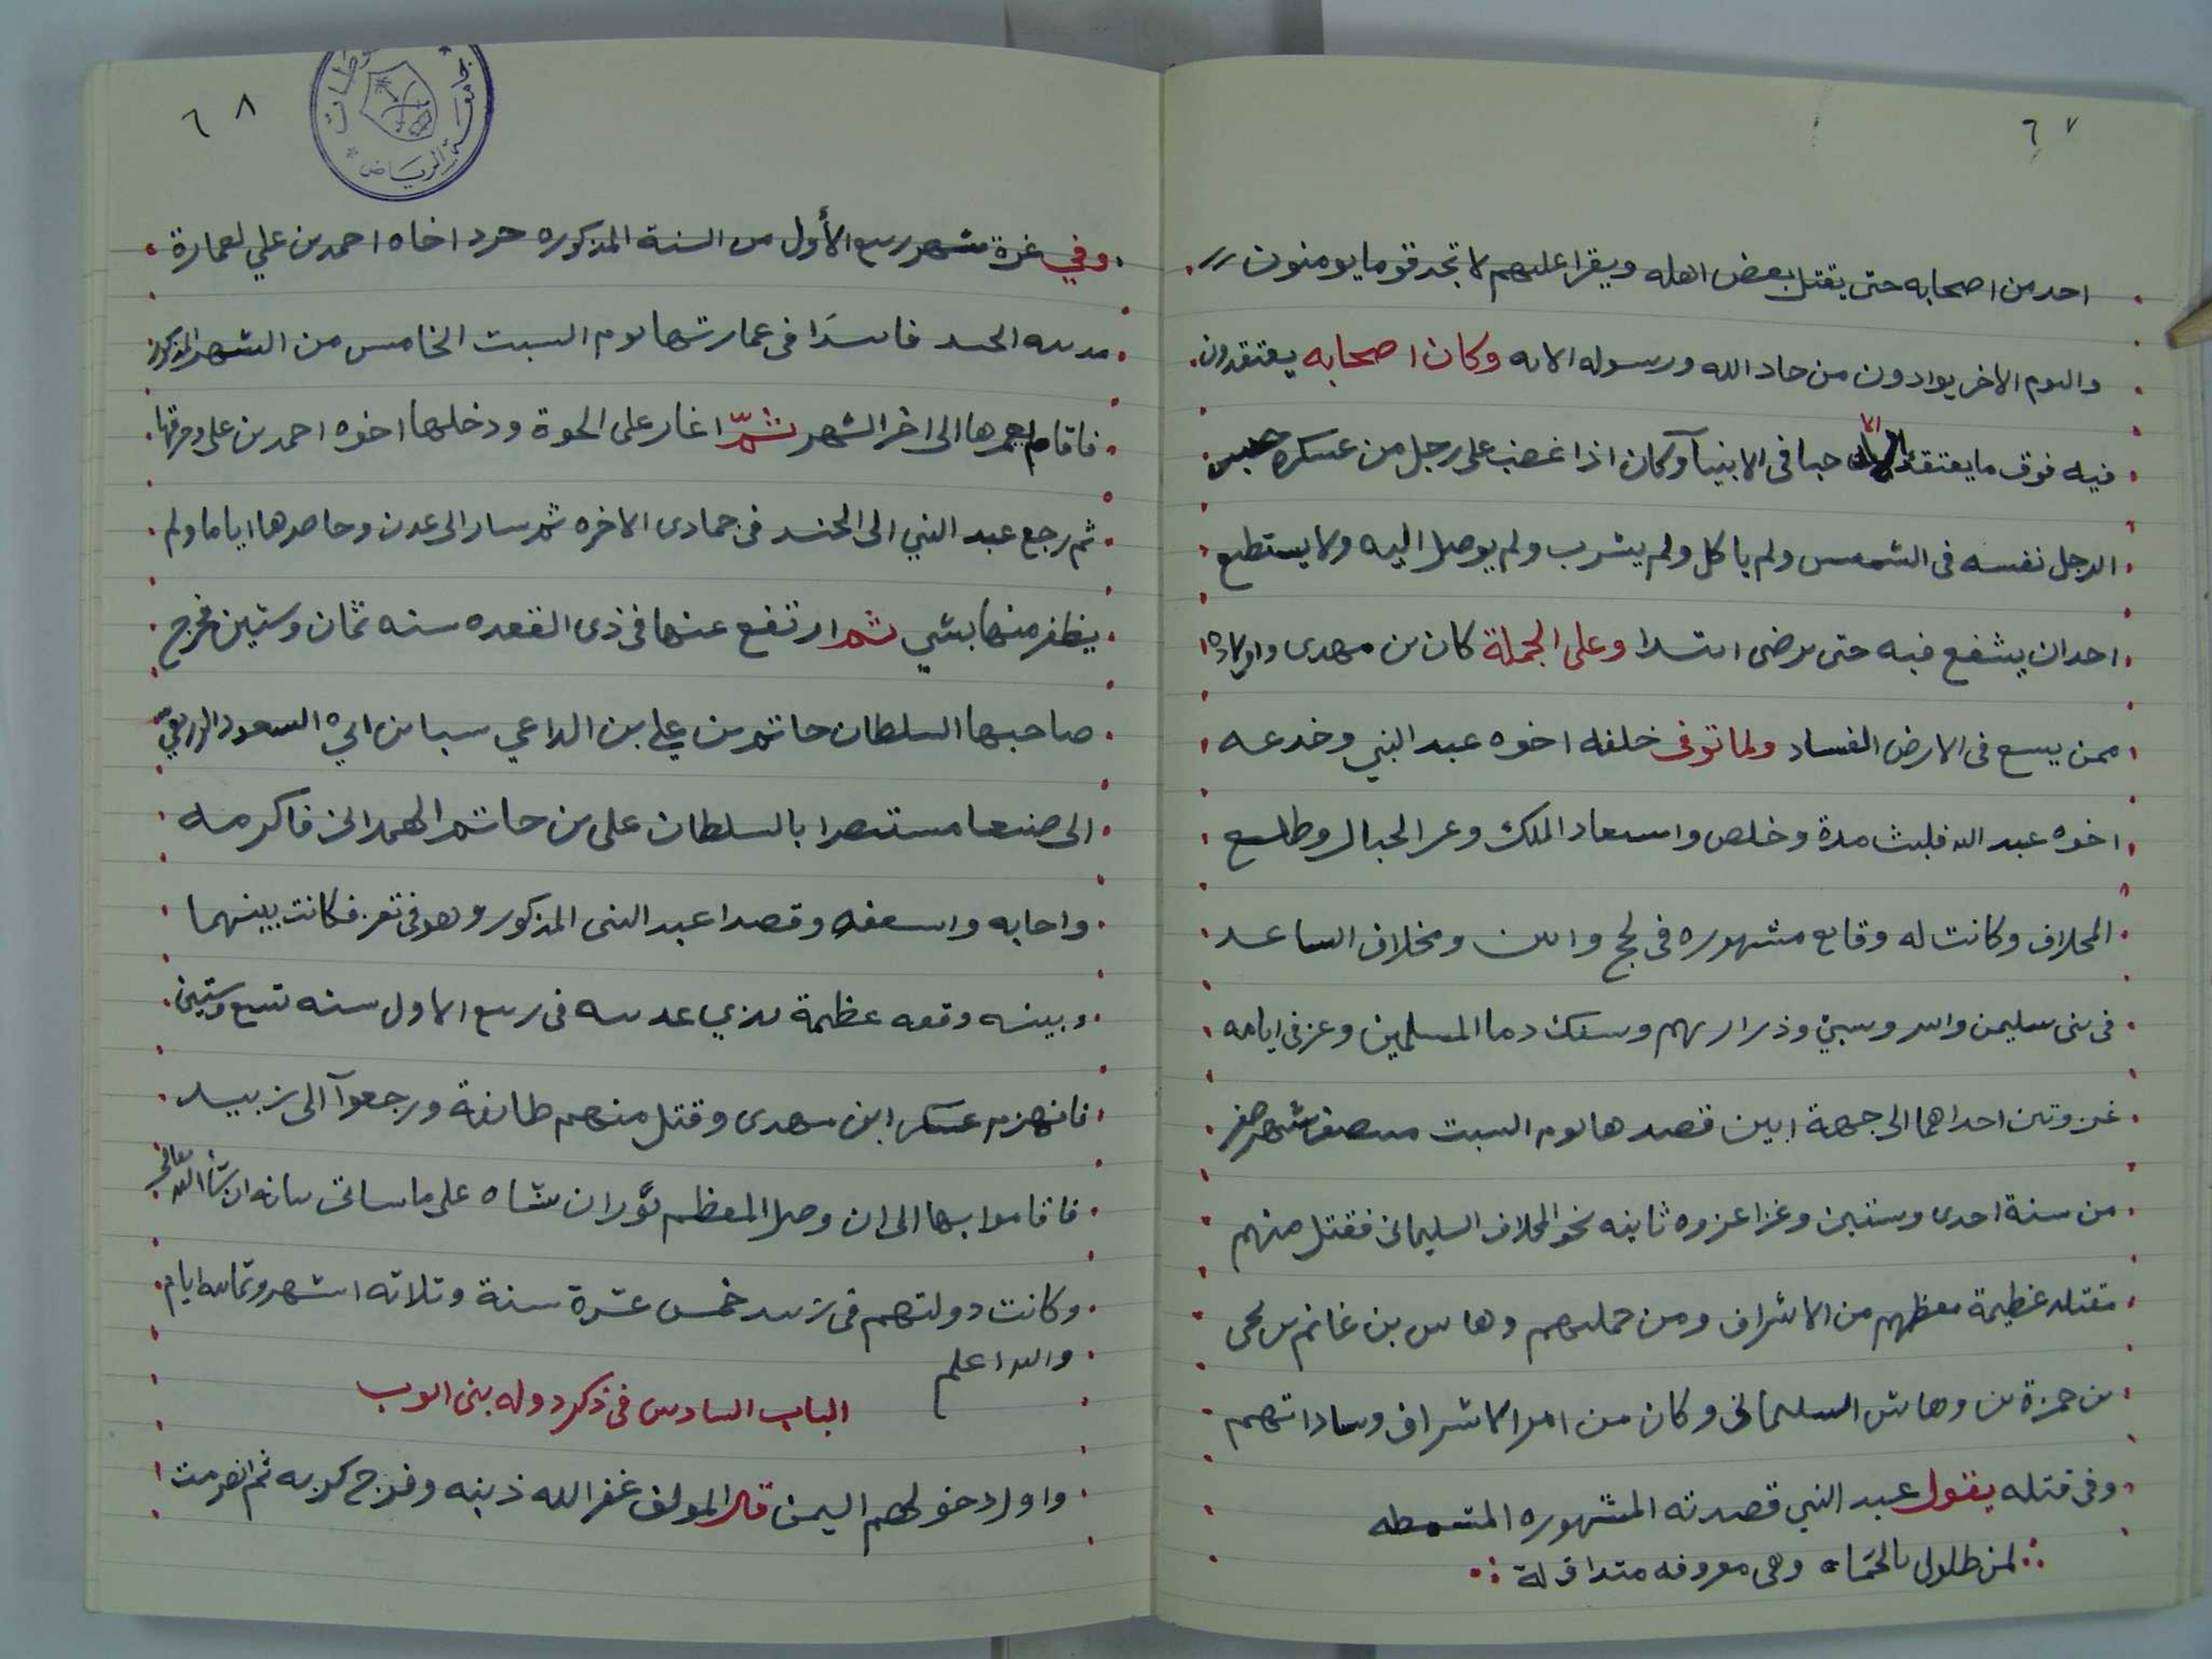 ٦٧
احد من اصحابه حتى يقتل بعض اهله ويقرا عليهم لا تجد قوما يومنون
واليوم الاخر يوادون من حاد الله ورسوله الايه وكان اصحابه يعتقدون
فيه فوق ما يعتقد الا حبا فى الانبيآ وكان اذا غضب على رجل من عسكره حبس
الرجل نفسه فى الشمس ولم ياكل ولم يشرب ولم يوصل اليه ولا يستطيع
احد ان يشفع فيه حتى يرضى ابتدا وعلى الجملة كان بن مهدى واولاده
ممن يسع فى الارض الفساد ولما توفى خلفه اخوه عبد النبي وخدعه
اخوه عبد الله فلبث مدة وخلص واستعاد الملك وعر الجبال وطلع
المخلاف وكانت له وقايع مشهوره فى لحج وابين ومخلاف الساعد
فى بنى سليمن واسر وسبي وذراريهم وسفك دما المسلمين وغزفى ايامه
غزوتين احداهما الى جهة ابين قصدها يوم السبت منتصف شهر صفر
من سنة احدى وستين وغزا غزوه ثانيه نحو المخلاف السليمانى فقتل منهم
مقتله عظيمة معظمهم من الاشراف ومن جملتهم وهاس بن غانم بن يحى
بن حمزة بن وهاس السليمانى وكان من امرا الاشراف وساداتهم
وفى قتله يقول عبد النبي قصدته المشهوره المشمطه
لمن طلول بالحماه وهى معروفه متداوله
٦٨
وفي غرة شهر ربيع الأول من السنة المذكوره جرد اخاه احمد بن علي لعمارة
مدينه الجند فابتدَا فى عمارتها يوم السبت الخامس من الشهر المذكور
فاقام يعمرها الى اخر الشهر ثمّ اغار على الجوة ودخلها اخوه احمد بن على وحرقها
ثم رجع عبد النبي الى الجند فى جمادى الاخره ثم سار الى عدن وحاصرها اياما ولم
يظفر منها بشي ثم ارتفع عنها فى ذى القعده سنه ثمان وستين فخرج
صاحبها السلطان حاتم بن علي بن الداعي سبا بن ابي السعود الزريعي
الى صنعا مستنصرا بالسلطان على بن حاتم الهمدانى فاكرمه
واجابه واسعفه وقصدا عبد النبى المذكور وهو فى تعز فكانت بينهما
وبينه وقعه عظيمة بذي عدينه فى ربيع الاول سنه تسع وستين
فانهزم عسكر ابن مهدى وقتل منهم طائفة ورجعوآ الى زبيد
فاقاموا بها الى ان وصل المعظم تُوران شاه على ما ساتى بيانه ان شاَ الله تعالى
وكانت دولتهم فى زبيد خمس عشرة سنة وثلاثه اشهر وثمانيه ايام
والله اعلم
الباب السادس فى ذكر دوله بنى ايوب
واول دخولهم اليمن قال المولف غفر الله ذنبه وفرج كربه ثم انصرمت
جامعة الرياض